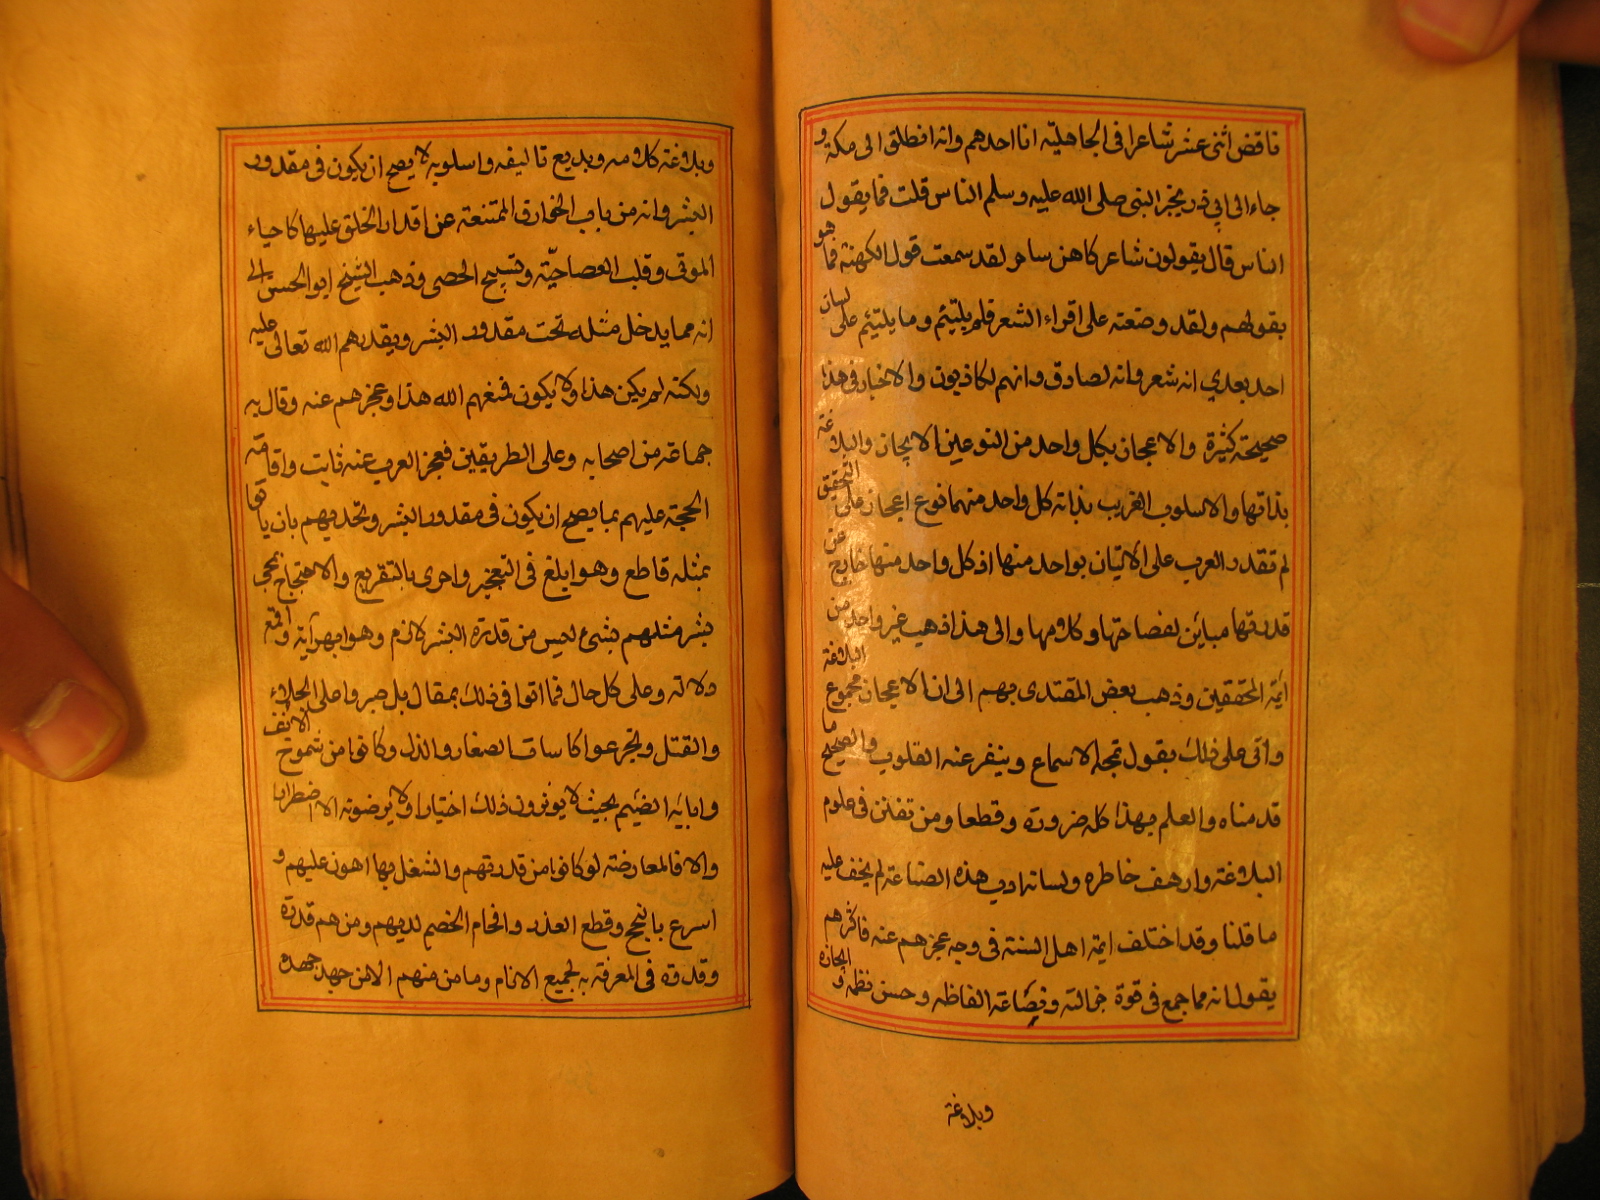 ناقض اثنى عشر شاعرا فى الجاهليّه انا احدهم وانه انطلق الى مكة و
جاء الى ابى ذر بخبر النبى صلى الله عليه وسلم الناس قلت فما يقول
الناس قال يقولون شاعر كاهن ساحر لقد سمعت قول الكهنة فما هو
بقولهم ولقد وضعته على اقراء الشعر فلم يلتئم وما يلتئم على لسان
احد بعدي انه شعر وانه لصادق وانهم لكاذبون والاخبار فى هذا
صحيحة كثيرة والاعجاز بكل واحد من النوعين الايجاز والبلاغة
بذاتها والاسلوب الغريب بذاته كل واحد منهما نوع اعجاز على التحقيق
لم تقدر العرب على الاتيان بواحد منها اذ كل واحد منها خارج عن
قدرتها مباين لفصاحتها وكلامها والى هذا ذهب غير واحد من
ائمة المحققين وذهب بعض المقتدى بهم الى ان الاعجاز مجموع البلاغة
واتى على ذلك بقول تمجه الاسماع وينفر عنه القلوب والصحيح ما
قدمناه والعلم بهذا كله ضرورة وقطعا ومن تفنن فى علوم
البلاغة وارهف خاطره ولسانه ادب هذه الصناعة لم يخف عليه
ما قلنا وقد اختلف ايمة اهل السنة فى وجه عجزهم عنه فاكثرهم
يقول انه مما جمع فى قوة جزالته وفصاعة الفاظه وحسن نظمه و ايجازه
وبلاغة
وبلاغة كلامه وبديع تاليفه واسلوبه لا يصح ان يكون فى مقدور
البشر وانه من باب الخوارق الممتنعة عن اقدار الخلق عليها كاحياء
الموتى وقلب العصا حيّة وتسبيح الحصى وذهب الشيخ ابو الحسن الى
انه مما يدخل مثله تحت مقدور البشر ويقدرهم الله تعالى عليه
ولكنه لم يكن هذا ولا يكون فمنعهم الله هذا وعجزهم عنه وقال به
جماعة من اصحابه وعلى الطريقين فعجز العرب عنه ثابت واقامة
الحجة عليهم بما يصح ان يكون فى مقدور البشر وتحديهم بان ياتوا
بمثله قاطع وهو ابلغ فى التعجيز واحرى بالتقريع والاحتجاج بمجى
بشر مثلهم بشئ ليس من قدرة البشر لازم وهو ابهر آية واقمع
دلالة وعلى كل حال فما اتوا فى ذلك بمقال بل صبروا على الجلاء
والقتل وتجرعوا كاسات الصغار والذل وكانوا من شموخ الانف
واباية الضيم بحيث لا يوثرون ذلك اختيارا ولا يرضونه الا اضطرارا
والا فالمعارضة لو كانوا من قدرتهم والشغل بها اهون عليهم و
اسرع بالنجح وقطع العذر وافحام الخصم لديهم ومن هم قدرة
وقدوة فى المعرفة به لجميع الانام وما من منهم الا من جهد جهده